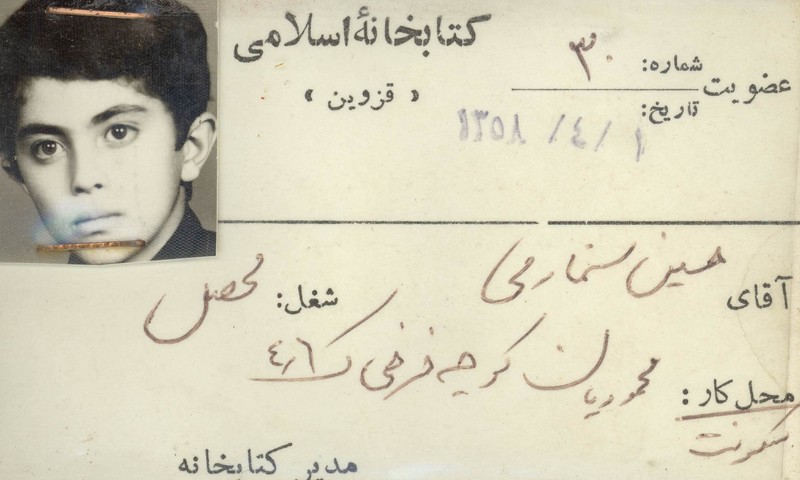 کتابخانهٔ اسلامی
« قزوین »
عضویت
شماره: ۳۰
تاریخ: ۱ /٤/ ۱۳۵۸
آقای حسین
شغل: محصل
محل کار: کوچه فرخی
سکونت
مدیر کتابخانه